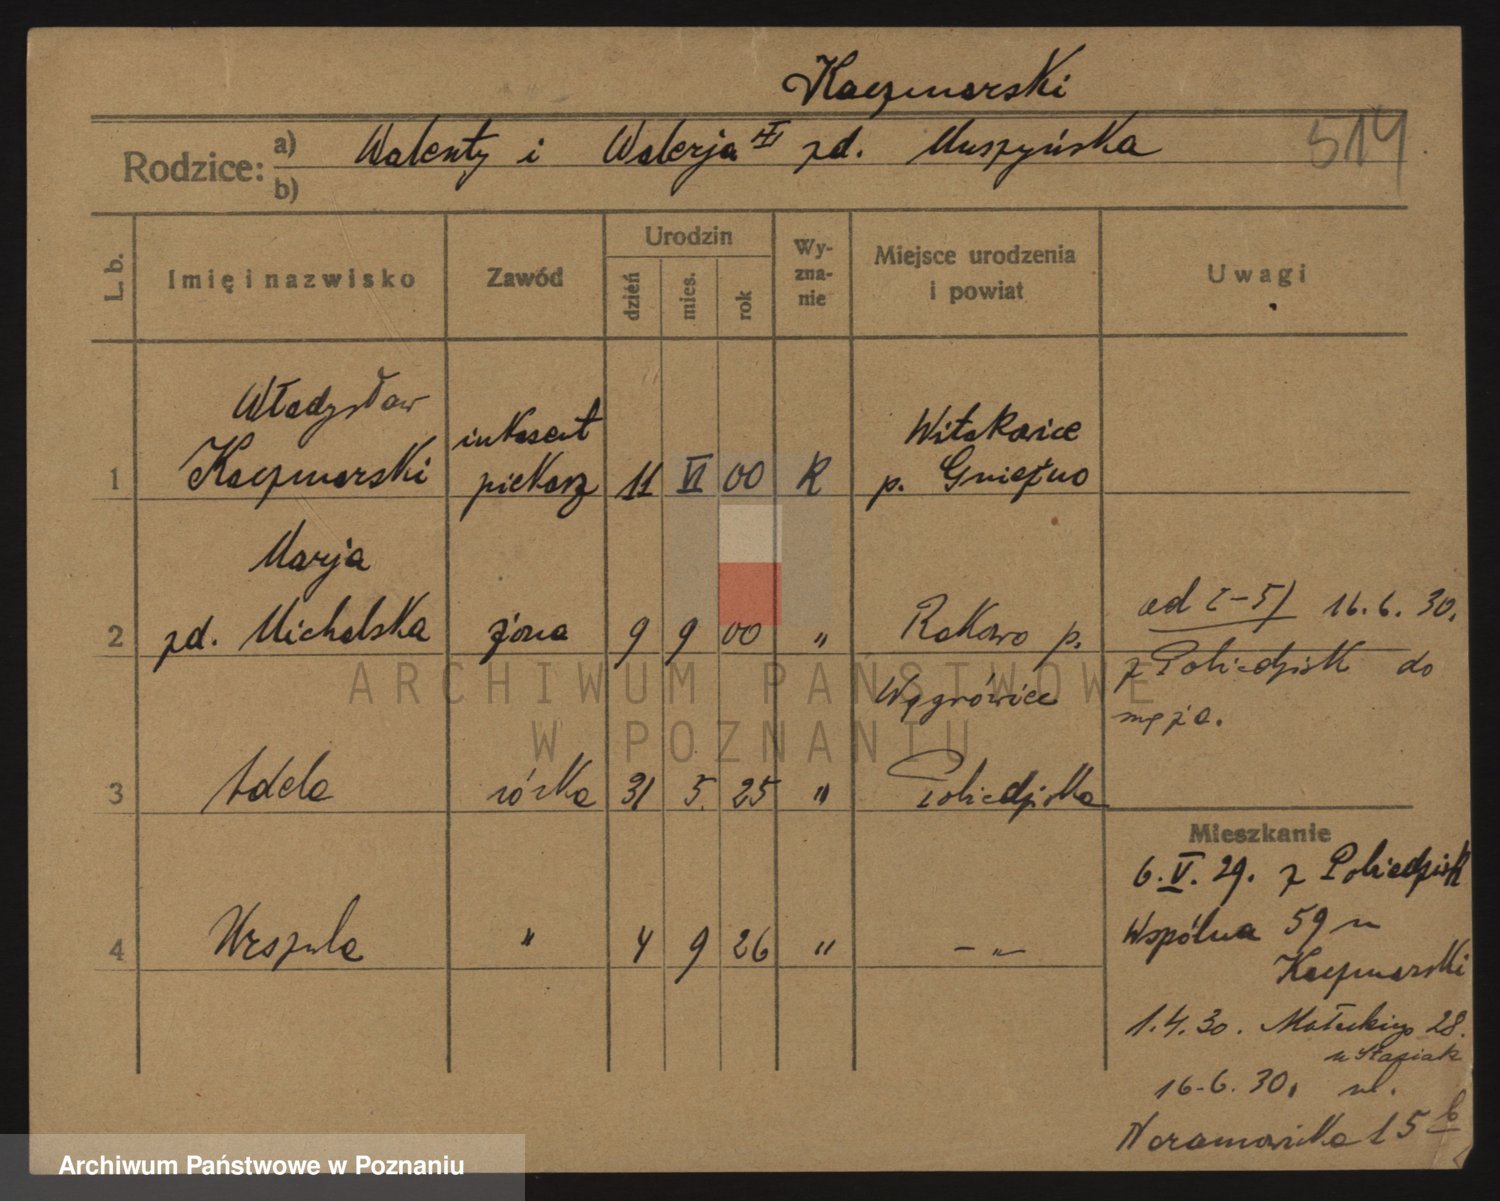 Kaczmarski
Rodzice: a) Walenty i Walerja III zd. Muszyńska
b)
514
L. b.
Imię i nazwisko
Zawód
Urodzin
dzień
mies.
rok
Wy-
zna-
nie
Miejsce urodzenia
i powiat
Uwagi
Władysław
Kaczmarski
inkasent
piekarz
1
11 VI 00 R
Witakowice
p. Gniezno
Marja
2 zd. Michalska żona 9 9 00 „ Rakowo p.
Wągrówiec
16.6.30.
z Pobiedzisk do
męża.
3 Adela córka 31 5. 25 „ Pobiedziska
4 Urszula „ 4 9 26 „ — „ —
Mieszkanie
6.V.29. z Pobiedzisk
Wspólna 59 u
Kaczmarski
1.4.30. Małeckiego 28.
u Stasiak
16.6.30. ul.
Naramowicka 15
ARCHIWUM PAŃSTWOWE
W POZNANIU
Archiwum Państwowe w Poznaniu